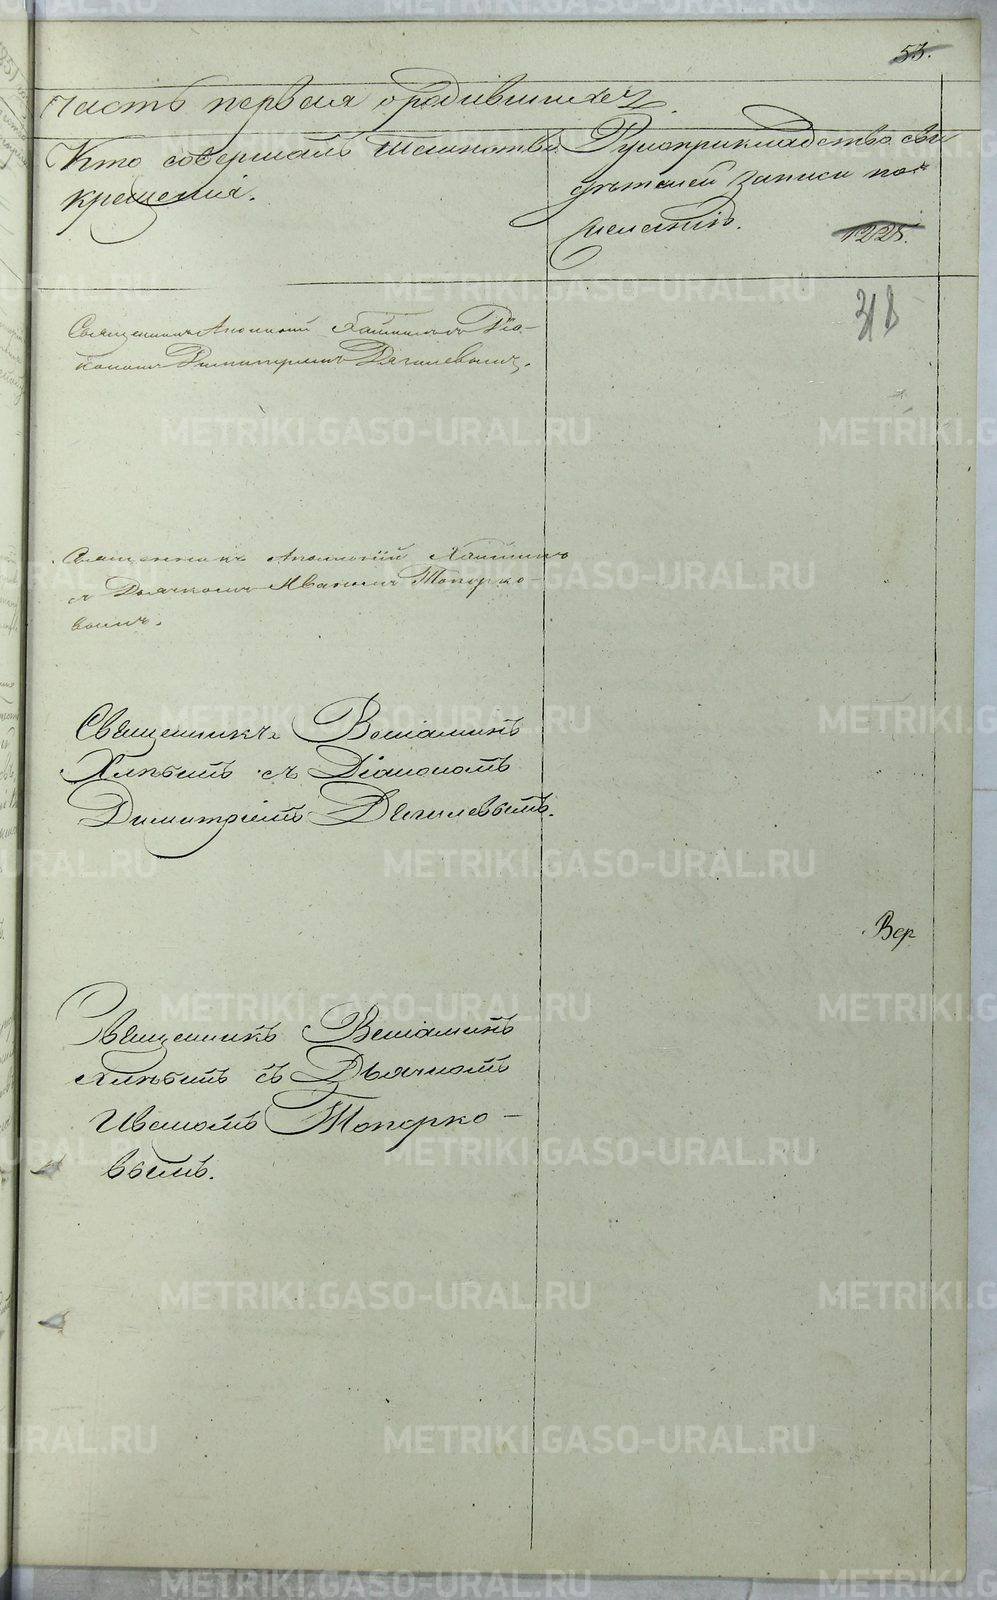 53.
Часть первая о родившихся.
Кто совершалъ таинство
крещенія.
Рукоприкладство сви
дѣтелей записи по
желанію.
1228.
318
Священникъ Аполлоній съ Діа-
кономъ Димитріемъ Дягилевымъ.
Священникъ Аполлоній
съ Дьячкомъ Иваномъ Топорко-
вымъ.
Священникъ Веніаминъ
Хлѣбинъ съ Діакономъ
Димитріемъ Дягилевымъ.
Вер
Священникъ Веніаминъ
Хлѣбинъ съ Дьячкомъ
Иваномъ Топорко-
вымъ.
METRIKI.GASO-URAL.RU